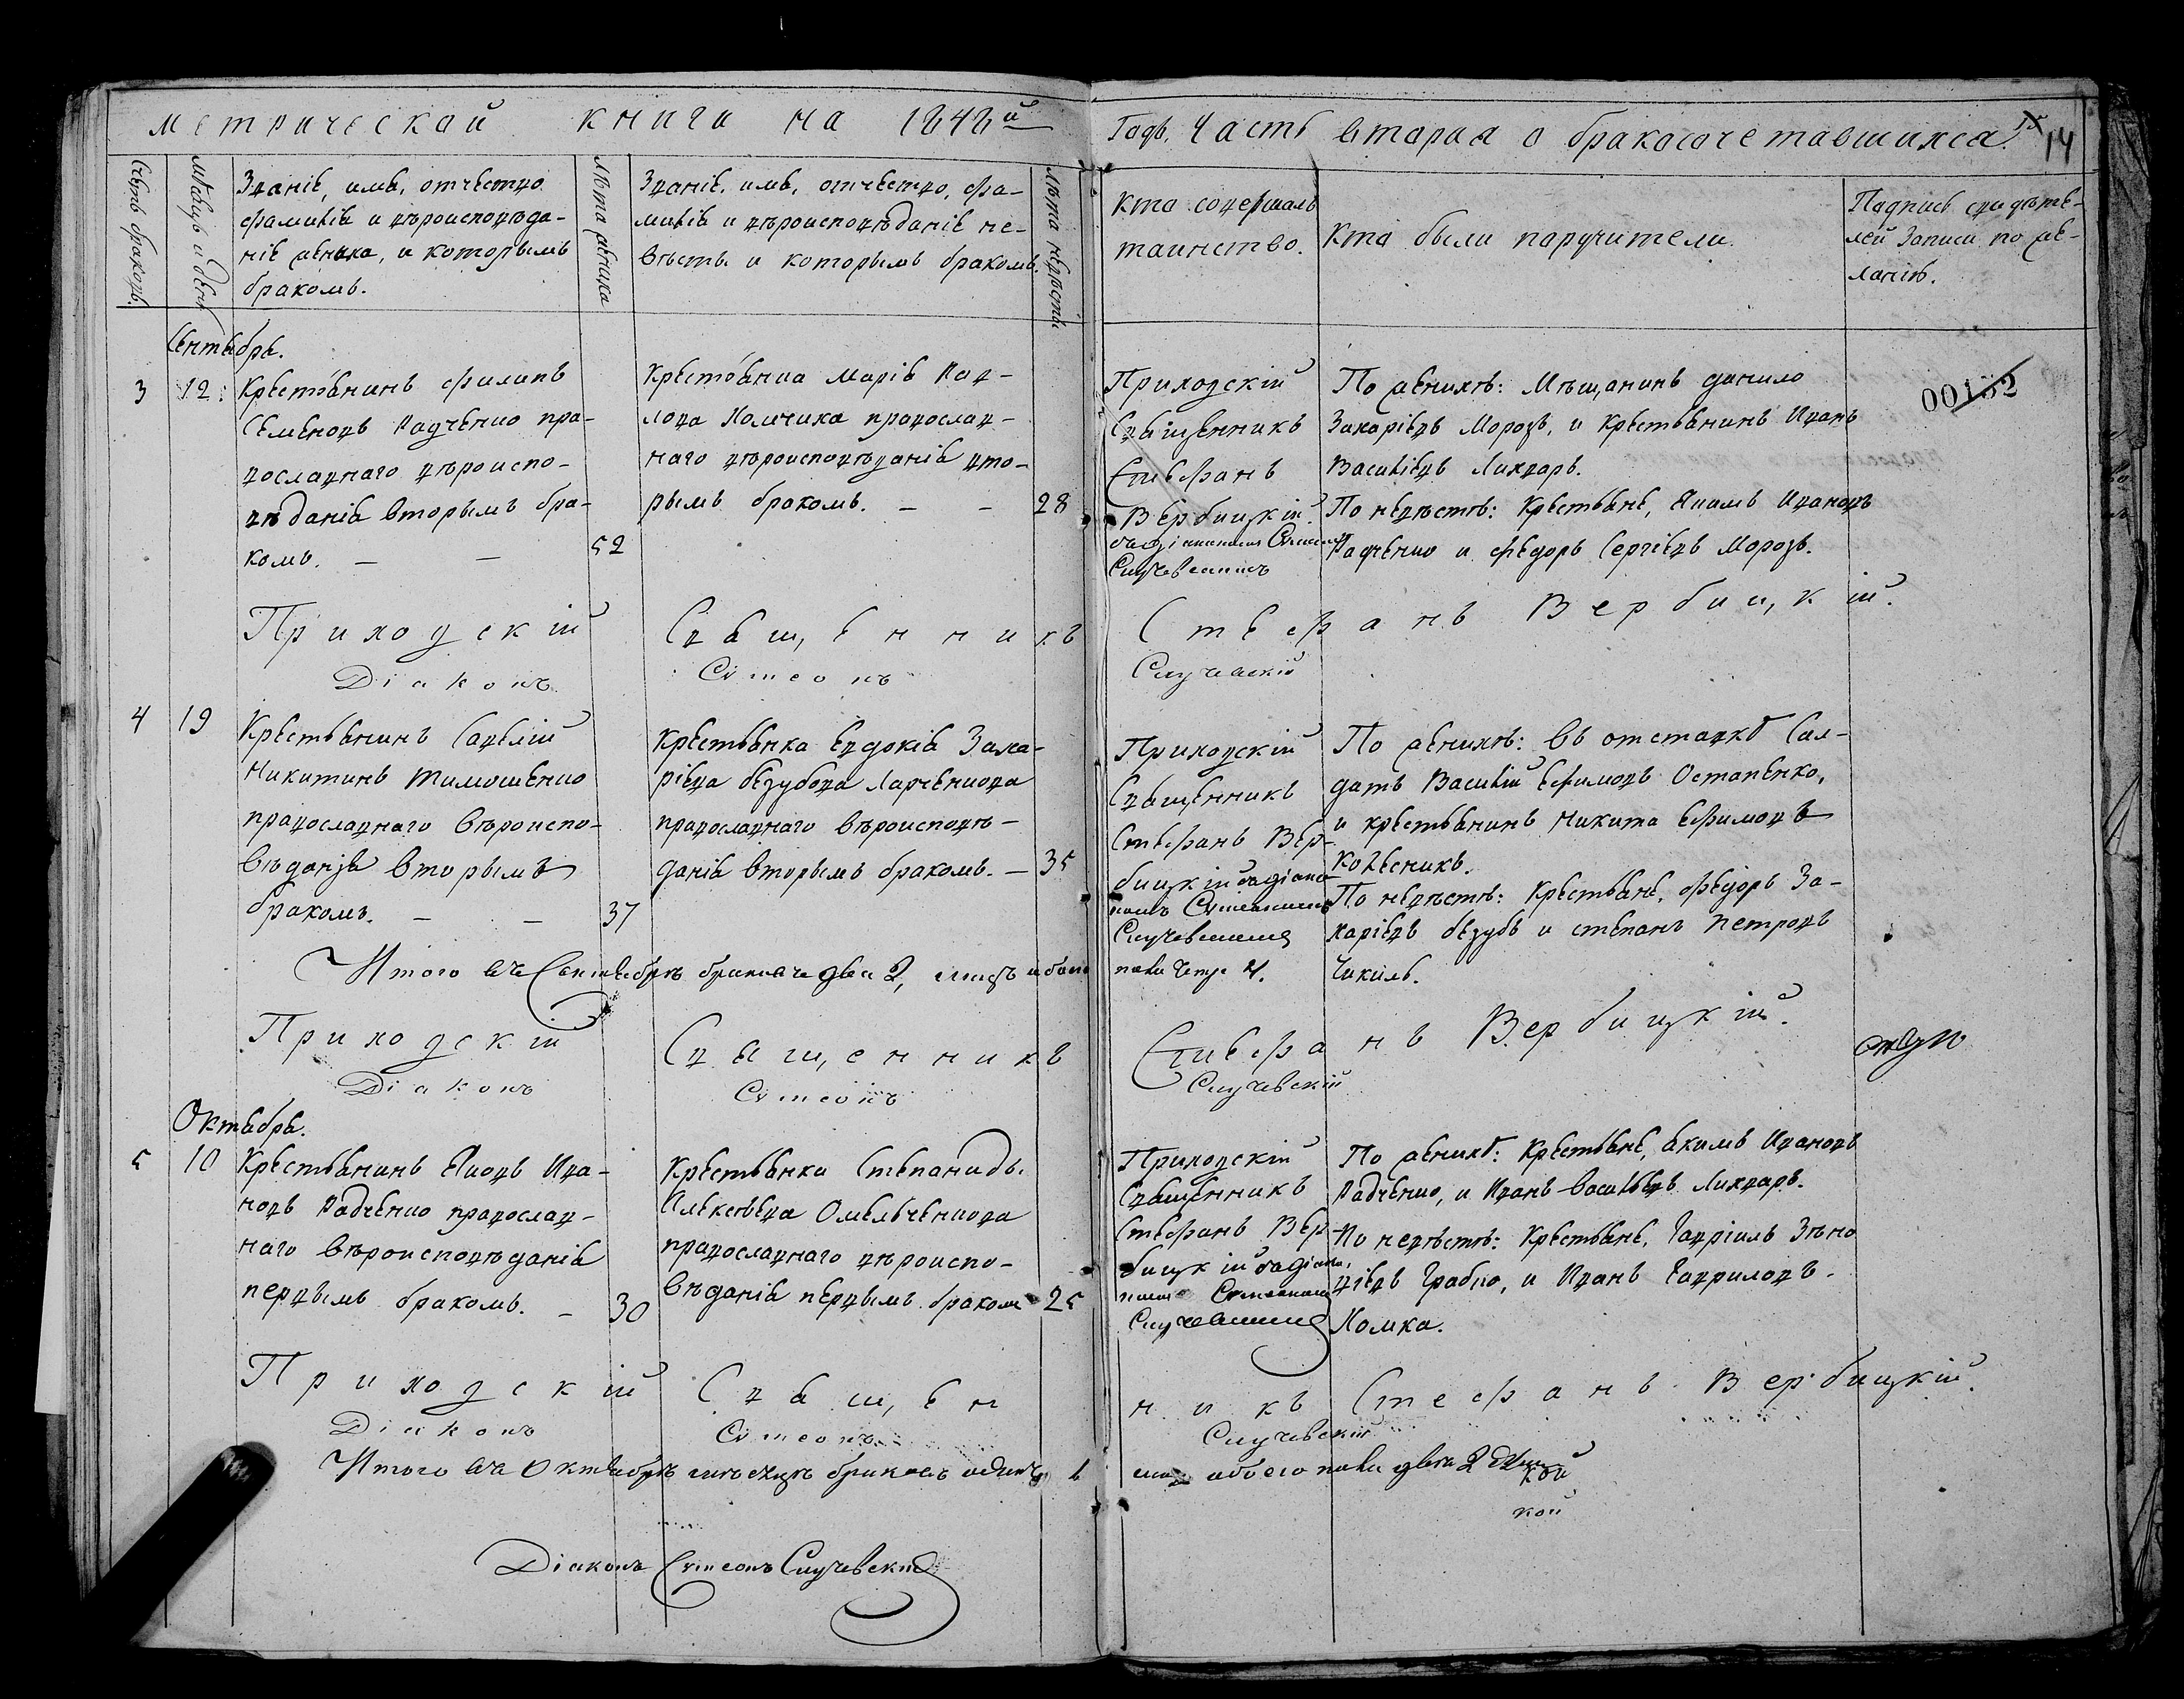 метрической книги на 1848й
Годъ, Часть вторая о бракосочетавшихся.
14
Счетъ браковъ.
Мѣсяцъ и день
Званіе, имя, отчество
фамилія и вѣроисповѣда-
ніе жениха, и которымъ
бракомъ.
Лѣта жениха
Званіе, имя, отчество, фа-
милія и вѣроисповѣданіе не-
вѣсты и которымъ бракомъ.
Лѣта невѣсты
Кто совершалъ
таинство.
Кто были поручители.
Подпись свидѣте-
лей записи по же-
ланію.
Сентября.
3
12
Крестьянинъ Филипъ
Семеновъ Радченко пра-
вославнаго вѣроиспо-
вѣданія вторымъ бра-
комъ. — —
52
Крестьянка Марія Пав-
лова православ-
наго вѣроисповѣданія вто-
рымъ бракомъ. — —
28
Приходскій
Священникъ
Стефанъ
Вербицкій
Случевскимъ
По женихѣ: Мѣщанинъ Данило
Захаріевъ Морозъ, и крестьянинъ Иванъ
Василіевъ Лихваръ.
По невѣстѣ: Крестьяне, Якимъ Ивановъ
Радченко и Федоръ Сергіевъ Морозъ.
00152
Приходскій Священникъ Стефанъ Вербицкій.
Діаконъ Сѵмеонъ Случевскій
4
19
Крестьянинъ Савелій
Никитинъ Тимошенко
православнаго вѣроиспо-
вѣданія вторымъ
бракомъ. — —
37
Крестьянка Евдокія Заха-
ріева Безубова Ларченкова
православнаго вѣроисповѣ-
данія вторымъ бракомъ. —
35
Приходскій
Священникъ
Стефанъ Вер-
бицкій съ діако-
номъ Сѵмеономъ
Случевскимъ
По женихѣ: въ отставкѣ Сал-
датъ Василій Ефимовъ Остапенко,
и крестьянинъ Никита Ефимовъ
Колесникъ.
По невѣстѣ: Крестьяне, Федоръ За-
харіевъ Безубъ и Степанъ Петровъ
Чикилъ.
Итого въ Сентябрѣ браковъ два 2, лицъ обоего
пола четыре 4.
Приходскій Священникъ Стефанъ Вербицкій.
Діаконъ Сѵмеонъ Случевскій
Октября.
5
10
Крестьянинъ Яковъ Ива-
новъ Радченко православ-
наго вѣроисповѣданія
первымъ бракомъ. —
30
Крестьянка Степанида
Алексѣева Омельченкова
православнаго вѣроиспо-
вѣданія первымъ бракомъ
25
Приходскій
Священникъ
Стефанъ Вер-
бицкій съ діако-
номъ Сѵмеономъ
Случевскимъ
По женихѣ: Крестьяне, Акимъ Ивановъ
Радченко, и Иванъ Васильевъ Лихваръ.
По невѣстѣ: Крестьяне, Гавріилъ Зѣно
віевъ Грабко, и Иванъ Гавриловъ
Хомка.
Приходскій Священ
никъ Стефанъ Вербицкій.
Діаконъ Сѵмеонъ Случевскій
Итого въ Октябрѣ мѣсяцѣ браковъ одинъ 1
лицъ обоего пола два 2
кой
Діаконъ Сѵмеонъ Случевскій